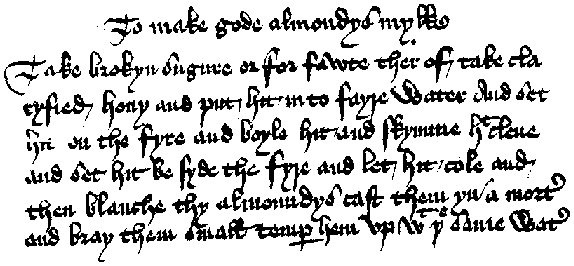 To make gode almondys mylke
Take brokyn sugure or for fawte ther of take cla
ryfied hony and put hit in to fayre water and set
hit on the fyre and boyle hit and skymme ht clene
and set hit be syde the fyre and let hit cole and
then blanche thy almondys cast them yn a mort
and bray them small temp hem vp wt þe same wat